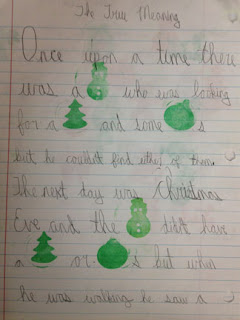 The True Meaning
Once upon a time there
was a who was looking
for a and some s
but he couldn't find either of them.
The next day was Christmas
Eve and the didn't have
a or s but when
he was walking he saw a